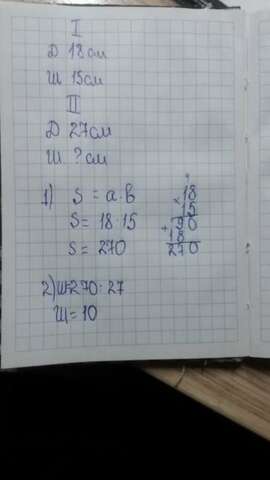 I
Д 18 см
Ш 15 см
II
Д 27 см
Ш ? см
1) S = a · b
S = 18 · 15
S = 270
× 18
15
+ 90
18
270
2) Ш=270 : 27
Ш = 10